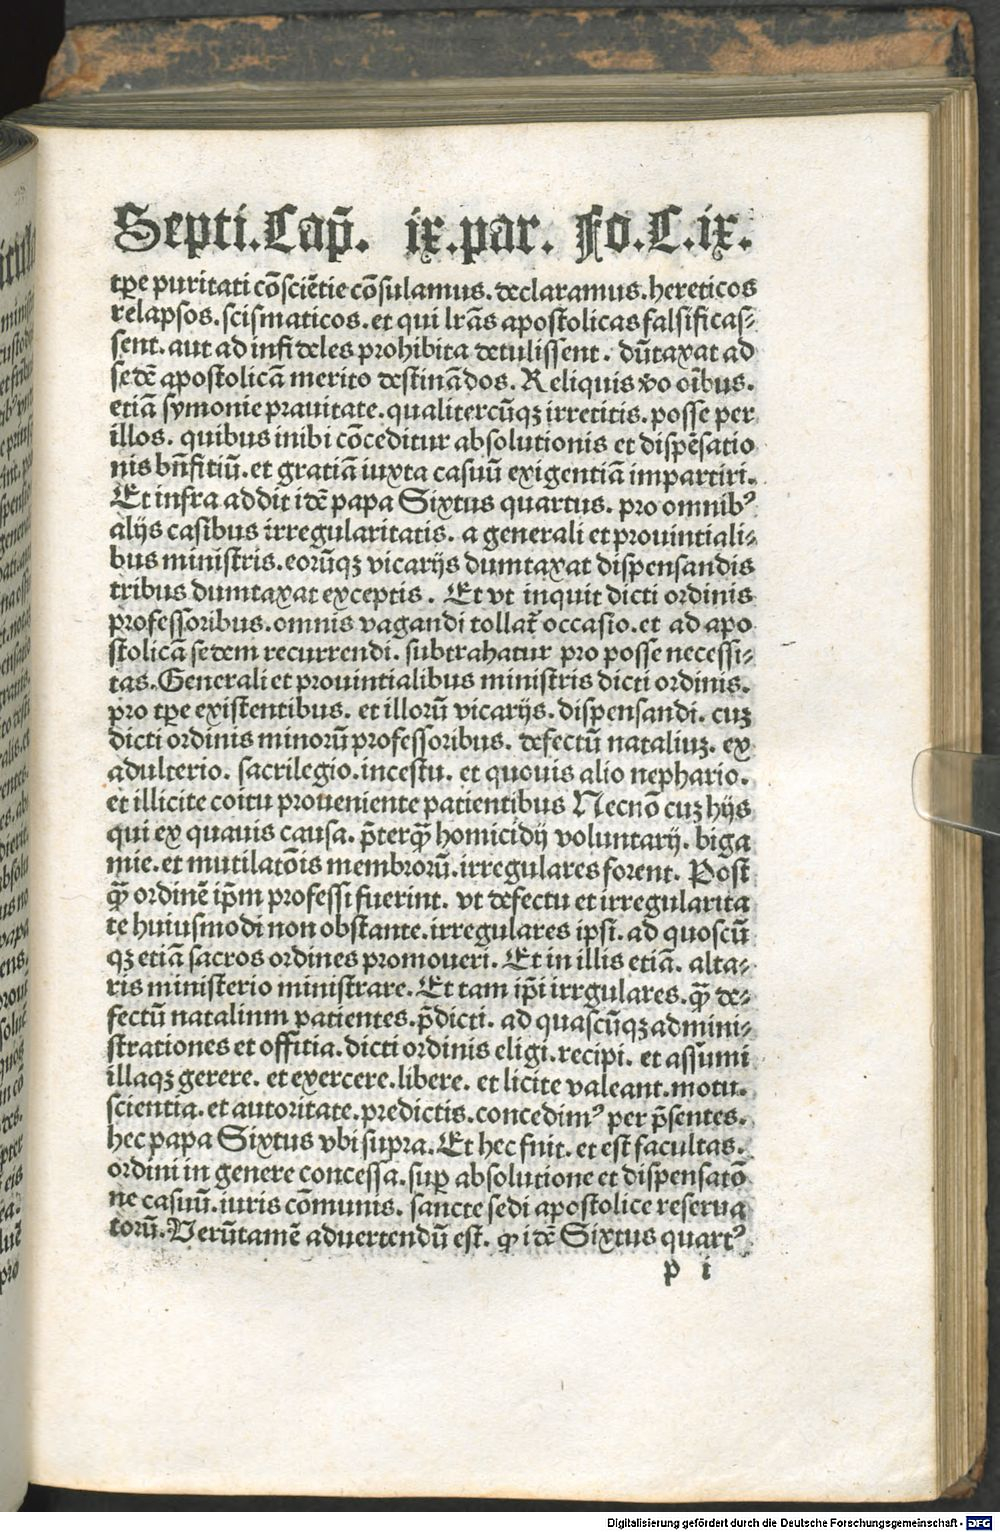 Septi.Cap̄. ix.par. Fo.C.ix.
tꝑe puritati cōsciētie cōsulamus. declaramus. hereticos
relapsos. scismaticos. et qui lr̄as apostolicas falsificas⸗
sent. aut ad infideles prohibita detulissent. dūtaxat ad
sedē apostolicā merito destinādos. Reliquis v̄o oībus.
etiā symonie prauitate. qualitercūqꝫ irretitis. posse per
illos. quibus inibi cōceditur absolutionis et dispēsatio
nis bn̄fitiū. et gratiā iuxta casuū exigentiā impartiri.
Et infra addit idē papa Sixtus quartus. pro omnibꝰ
alijs casibus irregularitatis. a generali et prouintiali⸗
bus ministris. eorūqꝫ vicarijs dumtaxat dispensandis
tribus dumtaxat exceptis. Et vt inquit dicti ordinis
professoribus. omnis vagandi tollat᷑ occasio. et ad apo
stolicā sedem recurrendi. subtrahatur pro posse necessi⸗
tas. Generali et prouintialibus ministris dicti ordinis.
pro tꝑe existentibus. et illorū vicarijs. dispensandi. cuꝫ
dicti ordinis minorū professoribus. defectū nataliuꝫ. ex
adulterio. sacrilegio. incestu. et quouis alio nephario.
et illicite coitu proueniente patientibus Necnō cuꝫ hijs
qui ex quauis causa. p̄terqꝫ̄ homicidij voluntarij. biga
mie. et mutilatōis membrorū. irregulares forent. Post
qꝫ̄ ordinē ip̄m professi fuerint. vt defectu et irregularita
te huiusmodi non obstante. irregulares ipsi. ad quoscū
qꝫ etiā sacros ordines promoueri. Et in illis etiā. alta⸗
ris ministerio ministrare. Et tam ip̄i irrgulares. qꝫ̄ de⸗
fectū natalinm patientes. p̄dicti. ad quascūqꝫ admini⸗
strationes et offitia. dicti ordinis eligi. recipi. et assumi
illaqꝫ gerere. et exercere. libere. et licite valeant. motu.
scientia. et autoritate. predictis. concedimꝰ per p̄sentes.
hec papa Sixtus vbi supra. Et hec fnit. et est facultas.
ordini in genere concessa. suꝑ absolutione et dispensatō
ne casuū. iuris cōmunis. sancte sedi apostolice reserua
torū. Verūtamē aduertendū est. ꝙ idē Sixtus quartꝰ
p i
Digitalisierung gefördert durch die Deutsche Forschungsgemeinschaft - DFG